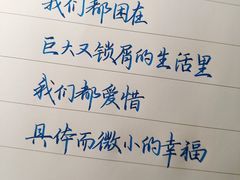 我们都困在
巨大又锁屑的生活里
我们都爱惜
具体而微小的幸福